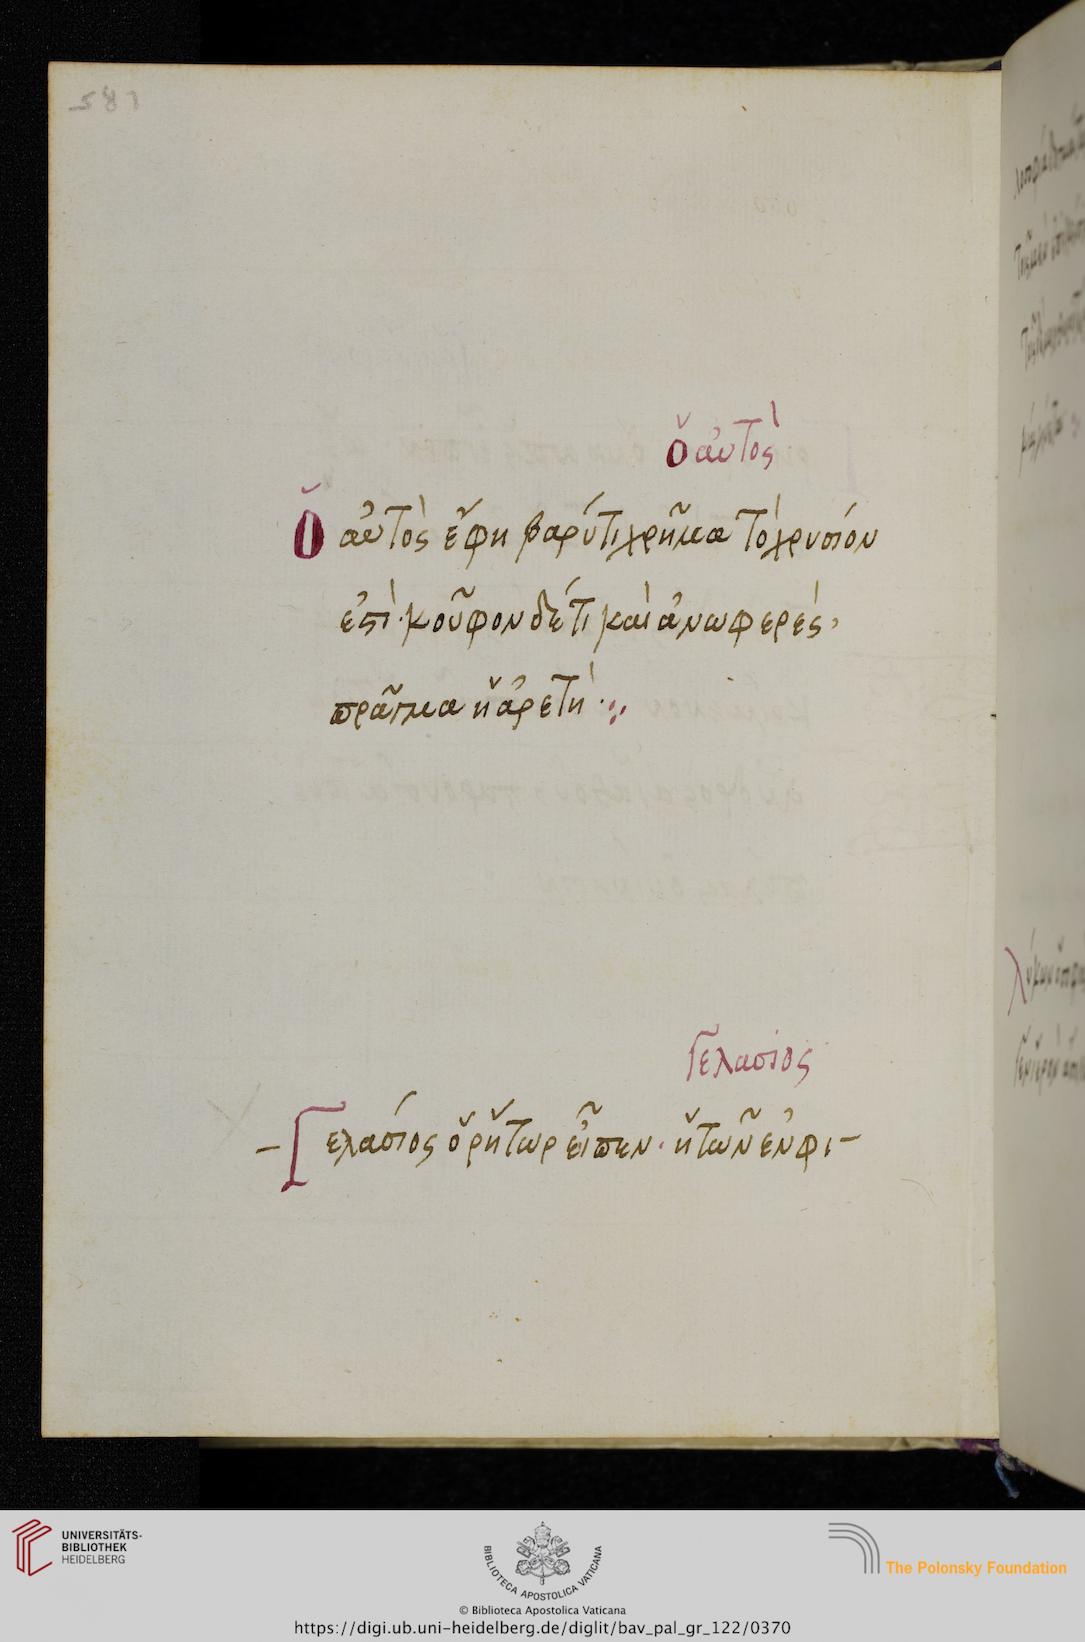 581
ὁ αὐτὸς
Ὁ αὐτὸς ἔφη βαρύ τι χρῆμα τὸ χρυσίον
ἐστὶ· κοῦφον δέ τι καὶ ἀνωφερὲς,
πρᾶγμα ἡ ἀρετὴ·:
Γελασιος
– Γελασίος ὁ ῥήτωρ εἶπεν· ἡ τῶν ἐν φι–
UNIVERSITÄTS-
BIBLIOTHEK
HEIDELBERG
BIBLIOTECA APOSTOLICA VATICANA
© Biblioteca Apostolica Vaticana
The Polonsky Foundation
https://digi.ub.uni-heidelberg.de/diglit/bav_pal_gr_122/0370